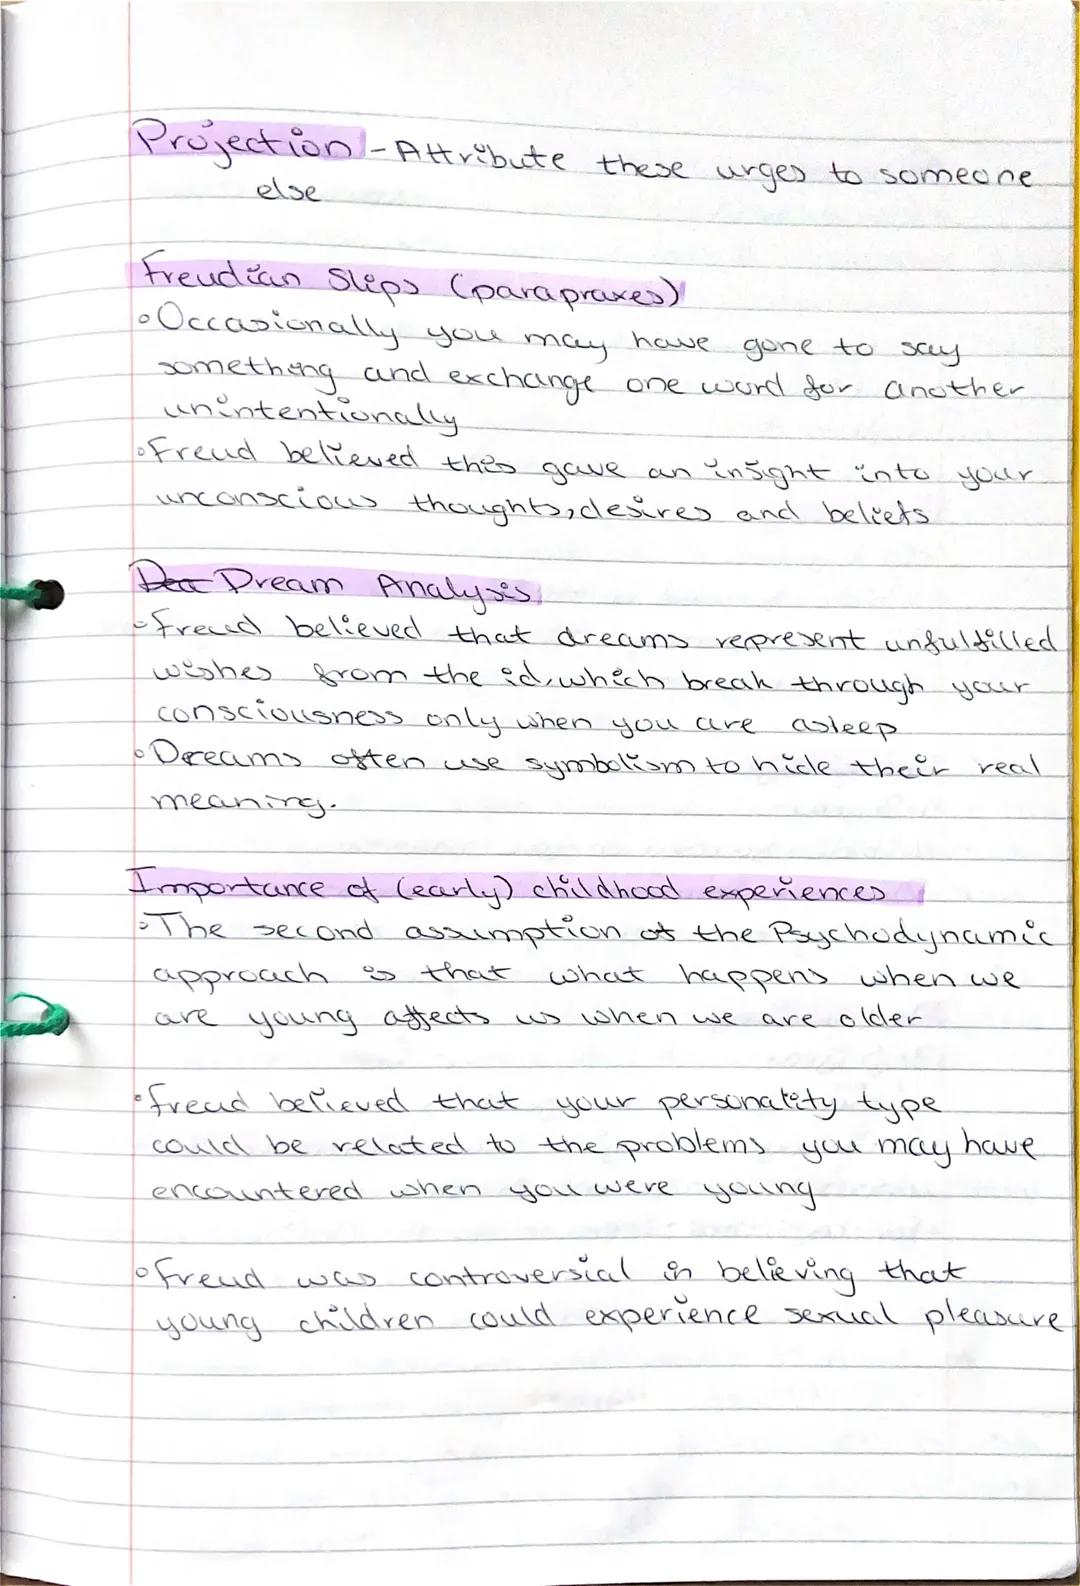 Projection - Attribute these urges to someone
else
Freudian Slips (parapraxes)
• Occasionally you may have gone to say
something and exchange one word for another
unintentionally
• Freud believed this gave an insight into your
unconscious thoughts, desires and beliefs
Dream Analysis
• Freud believed that dreams represent unfulfilled
wishes from the id, which break through your
consciousness only when you are asleep
• Dreams often use symbolism to hide their real
meaning.
Importance of (early) childhood experiences
• The second assumption of the Psychodynamic
approach is that what happens when we
are young affects us when we are older
• Freud believed that your personality type
could be related to the problems you may have
encountered when you were young
• Freud was controversial in believing that
young children could experience sexual pleasure